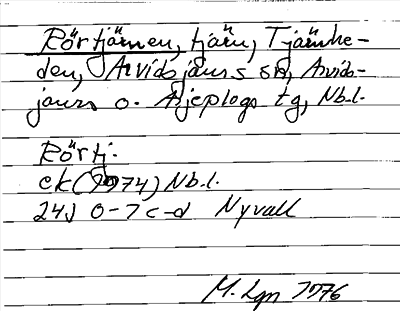 Rörtjärnen, tjärn, Tjärnhe-
den, Arvidsjaurs sn, Arvids-
jaurs o. Arjeplogs tg, Nb.l.
Rörtj.
ek (1974) Nb.l.
24J 0-7 c-d Nyvall
M. Lgn 1976